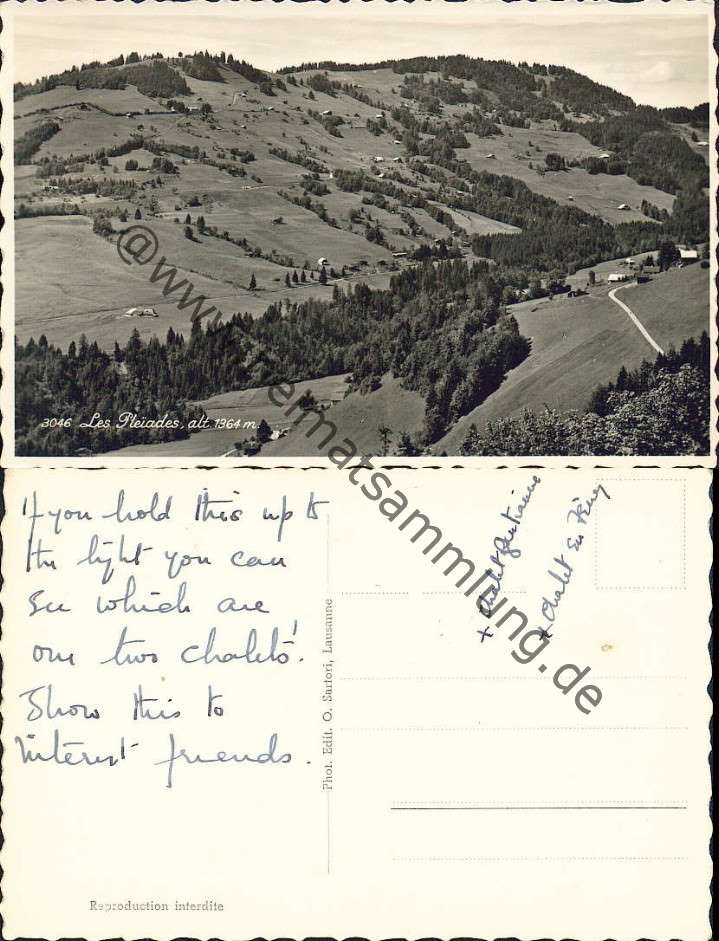 3046 Les Pleiades, alt 1364 m.
@www.heimatsammlung.de
If you hold this up to
the light you can
see which are
our two chalets!
Show this to
interest friends.
+ Chalet
+ Chalet En
Phot. Edit. O. Sartori, Lausanne
Reproduction interdite